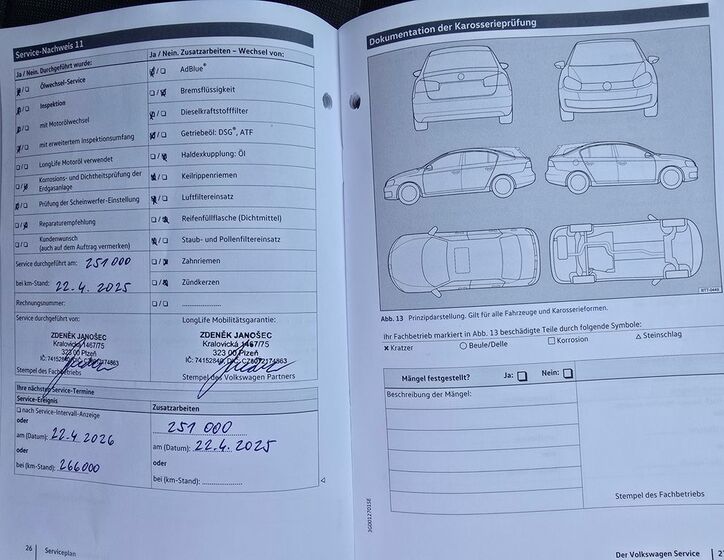 Service-Nachweis 11
Ja / Nein. Durchgeführt wurde:
Ölwechsel-Service
Inspektion
mit Motorölwechsel
mit erweitertem Inspektionsumfang
LongLife Motoröl verwendet
Korrosions- und Dichtheitsprüfung der
Erdgasanlage
Prüfung der Scheinwerfer-Einstellung
Reparaturempfehlung
Kundenwunsch
(auch auf dem Auftrag vermerken)
Service durchgeführt am: 251 000
bei km-Stand: 22.4.2025
Rechnungsnummer:
Service durchgeführt von:
ZDENĚK JANOŠEC
Kralovická 1467/75
323 00 Plzeň
Stempel des Fachbetriebs
Ja / Nein. Zusatzarbeiten – Wechsel von:
AdBlue®
Bremsflüssigkeit
Dieselkraftstofffilter
Getriebeöl: DSG®, ATF
Haldexkupplung: Öl
Keilrippenriemen
Luftfiltereinsatz
Reifenfüllflasche (Dichtmittel)
Staub- und Pollenfiltereinsatz
Zahnriemen
Zündkerzen
LongLife Mobilitätsgarantie:
ZDENĚK JANOŠEC
Kralovická 1467/75
323 00 Plzeň
Stempel des Volkswagen Partners
Ihre nächsten Service-Termine
Service-Ereignis
nach Service-Intervall-Anzeige
oder
am (Datum): 22.4.2026
oder
bei (km-Stand): 266000
Zusatzarbeiten
251 000
am (Datum): 22.4.2025
oder
bei (km-Stand):
26 Serviceplan
Dokumentation der Karosserieprüfung
RTT-0449
Abb. 13 Prinzipdarstellung. Gilt für alle Fahrzeuge und Karosserieformen.
Ihr Fachbetrieb markiert in Abb. 13 beschädigte Teile durch folgende Symbole:
× Kratzer ○ Beule/Delle □ Korrosion △ Steinschlag
Mängel festgestellt? Ja: Nein:
Beschreibung der Mängel:
Stempel des Fachbetriebs
3G0012701SE
Der Volkswagen Service